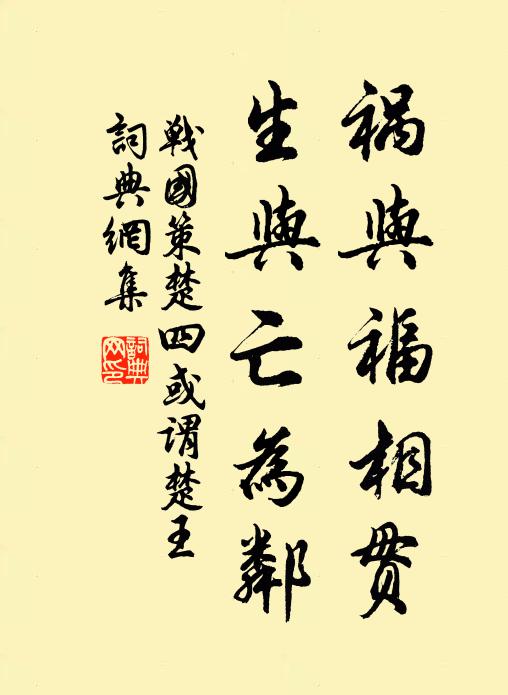 禍與福相貫
生與亡為鄰
戰國策楚四或謂楚王
詞典網集
詞典
网印